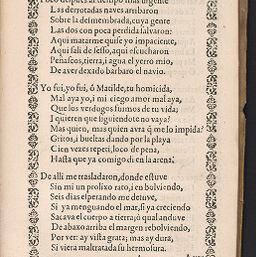 Poco despues al tiempo mas urgente
Las derrotadas naves arribaron
Sobre la desmembrada, cuya gente
Las dos con poca perdida salvaron:
Aqui matarme quise yo impaciente,
Aqui sali de sesso, aqui escucharon
Peñascos, tierra, i agua el yerro mio,
De aver dexado barbaro el navio.
Yo fui, yo fui, ô Matilde, tu homicida,
Mal aya yo, i mi ciego amor mal aya,
Que los verdugos fuimos de tu vida;
I quieren que siguiendote no vaya?
Mas quien, mas quien avra q̃ me lo impida?
Gritos, i bueltas dando por la playa
Cien vezes repeti, loco de pena,
Hasta que ya comigo di en la arena.
De alli me trasladaron, donde estuve
Sin mi un prolixo rato, i en bolviendo,
Seis dias esperando me detuve,
Si ya menguando el mar, si ya creciendo
Sacava el cuerpo a tierra; ò qual anduve
De abaxo arriba el margen rebolviendo,
Por ver: ay vista grata; mas ay dura,
Si viera maltratada su hermosura.